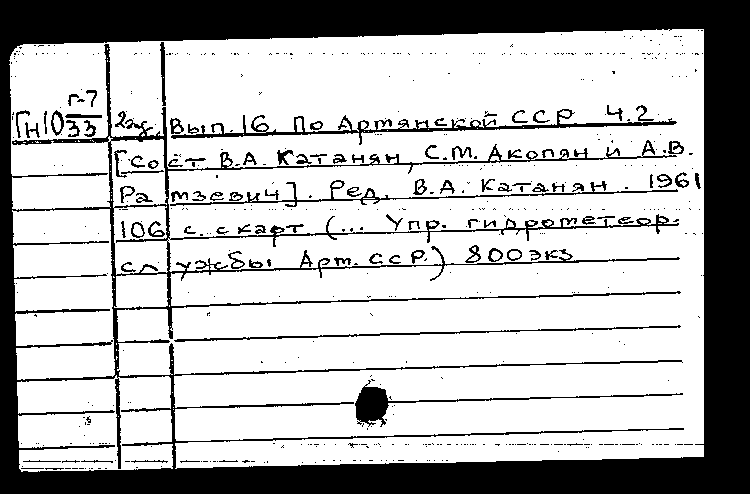 Гн10 Г-7
33 2 экз. Вып. 16. По Армянской ССР Ч.2.
[Сост В.А. Катанян, С.М. Акопян и А.В.
Рамзевич]. Ред. В.А. Катанян. 1961
106 с. с карт. (... Упр. гидрометеор.
службы Арм. ССР.) 800 экз